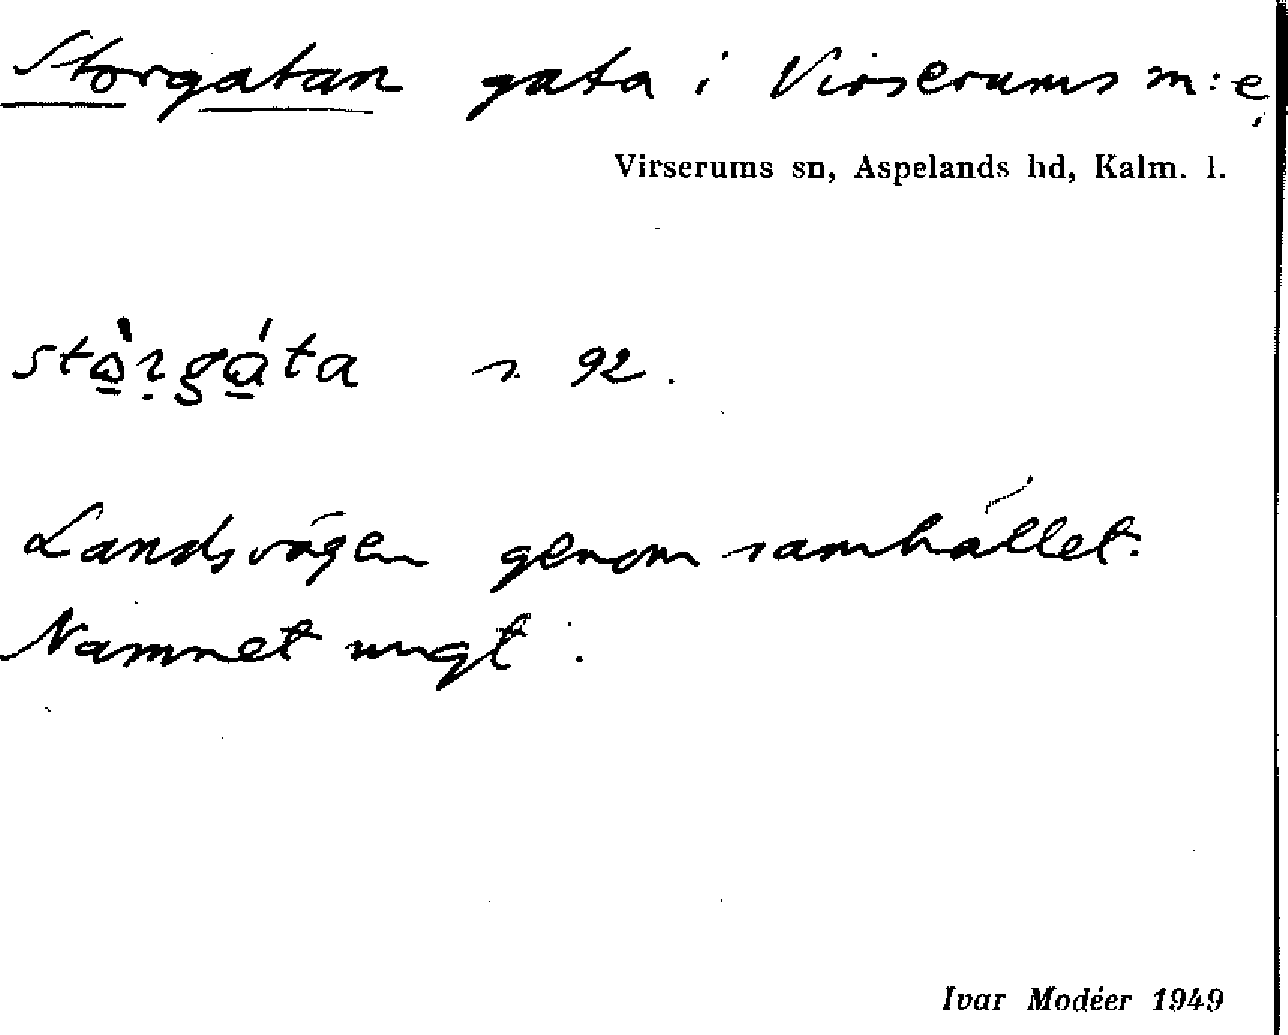 Storgatan gata i Virserums m:e
Virserums sn, Aspelands hd, Kalm. l.
92.
Landsvägen genom samhället.
Namnet ungt.
Ivar Modéer 1949